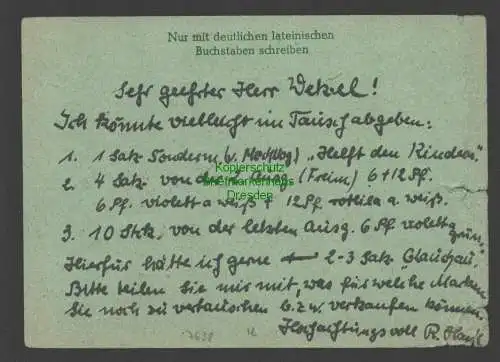 Nur mit deutlichen lateinischen
Buchstaben schreiben
Sehr geehrter Herr Wetzel!
Ich könnte vielleicht im Tausch abgeben:
1. 1 Satz Sonderm. (v. ) "Helft den Kindern"
2. 4 Satz von der Ausg. (Freim) 6+12 Pf.
6 Pf. violett a weiß + 12 Pf rotlila a. weiß.
3. 10 Stck. von der letzten Ausg. 6 Pf violett a grün.
Hierfür hätte ich gerne 2-3 Satz "Glauchau"
Bitte teilen Sie mir mit, was für welche Marken
Sie noch zu vertauschen b.z.w. verkaufen können.
Hochachtungsvoll R.
Kopierschutz
Briefmarkenhaus
Dresden
17698